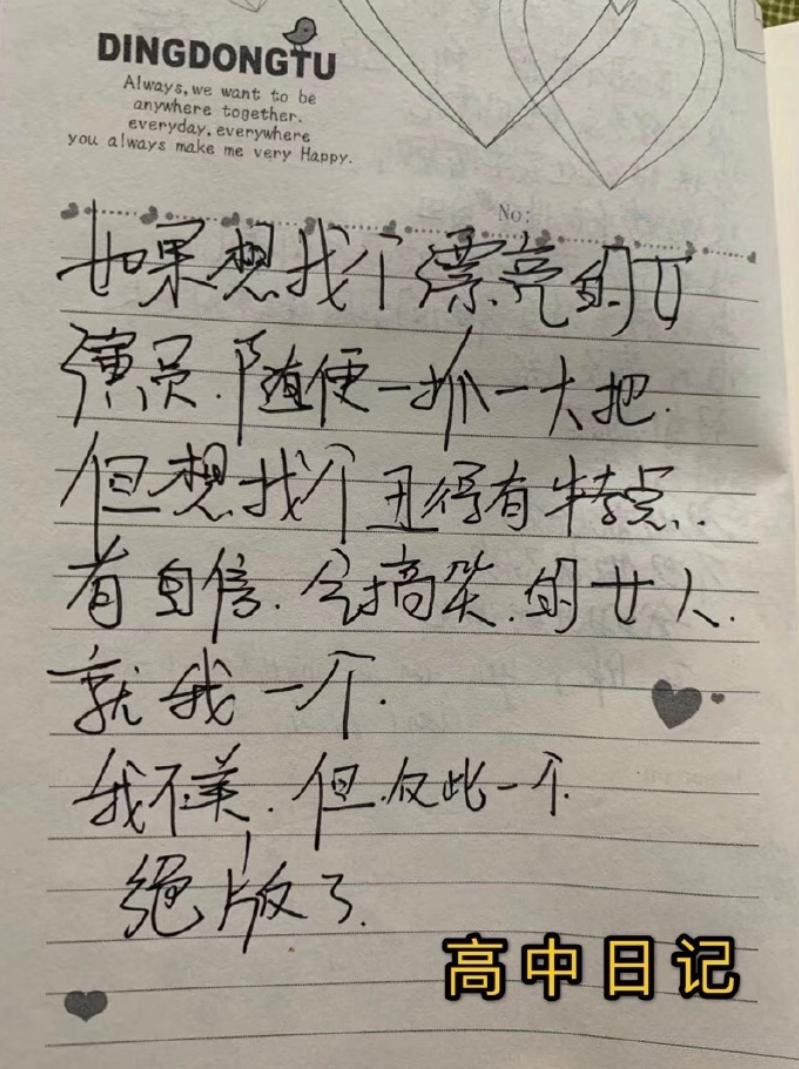 DINGDONGTU
Always, we want to be
anywhere together.
everyday, everywhere
you always make me very Happy.
No:
如果想找个漂亮的女
演员.随便一抓一大把.
但想找个丑得有特点.
有自信.会搞笑.的女人.
就我一个.
我不美.但.仅此一个.
绝版了.
高中日记